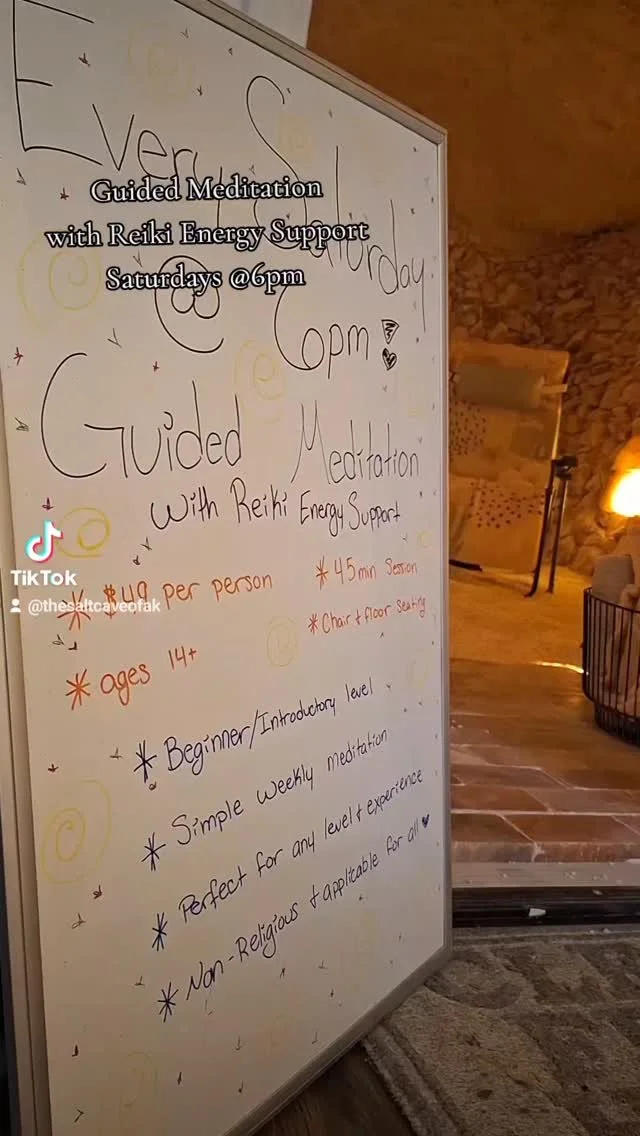 Every Saturday
@ 6pm!
Guided Meditation
with Reiki Energy Support
Saturdays @6pm
Guided Meditation
With Reiki Energy Support
* $49 per person
* 45min Session
* ages 14+
* Chair + floor seating
* Beginner/Introductory level
* Simple weekly meditation
* Perfect for any level + experience
* Non-Religious + applicable for all
TikTok
@thesaltcaveofak